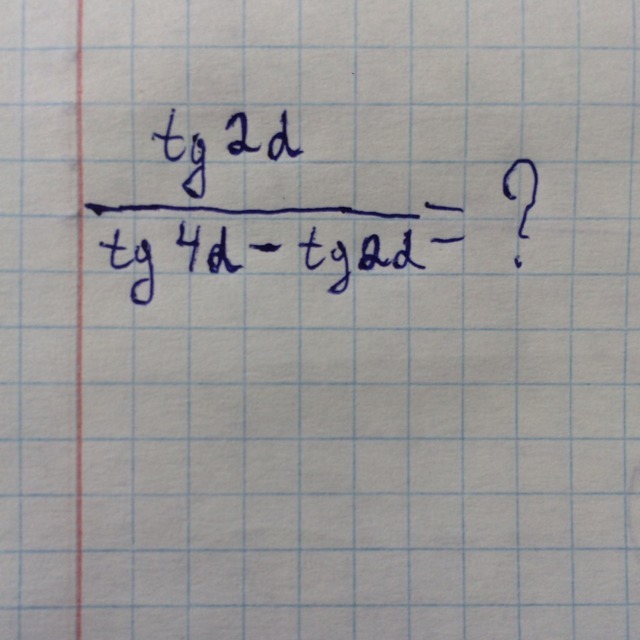 tg 2α
tg 4α - tg 2α = ?